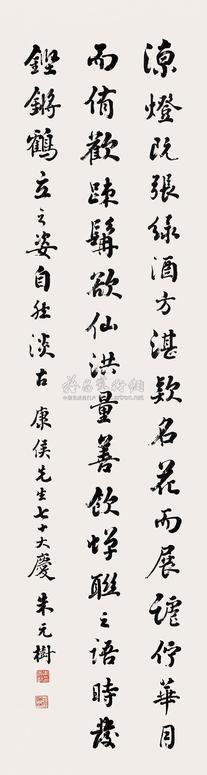 凉燈既張綠酒方湛欵名花而展謔佇華月
而侑歡疎髯欲仙洪量善飲蟬聯之語時發
鏗鏘鶴立之姿自然淡古 康侯先生七十大慶 朱元樹